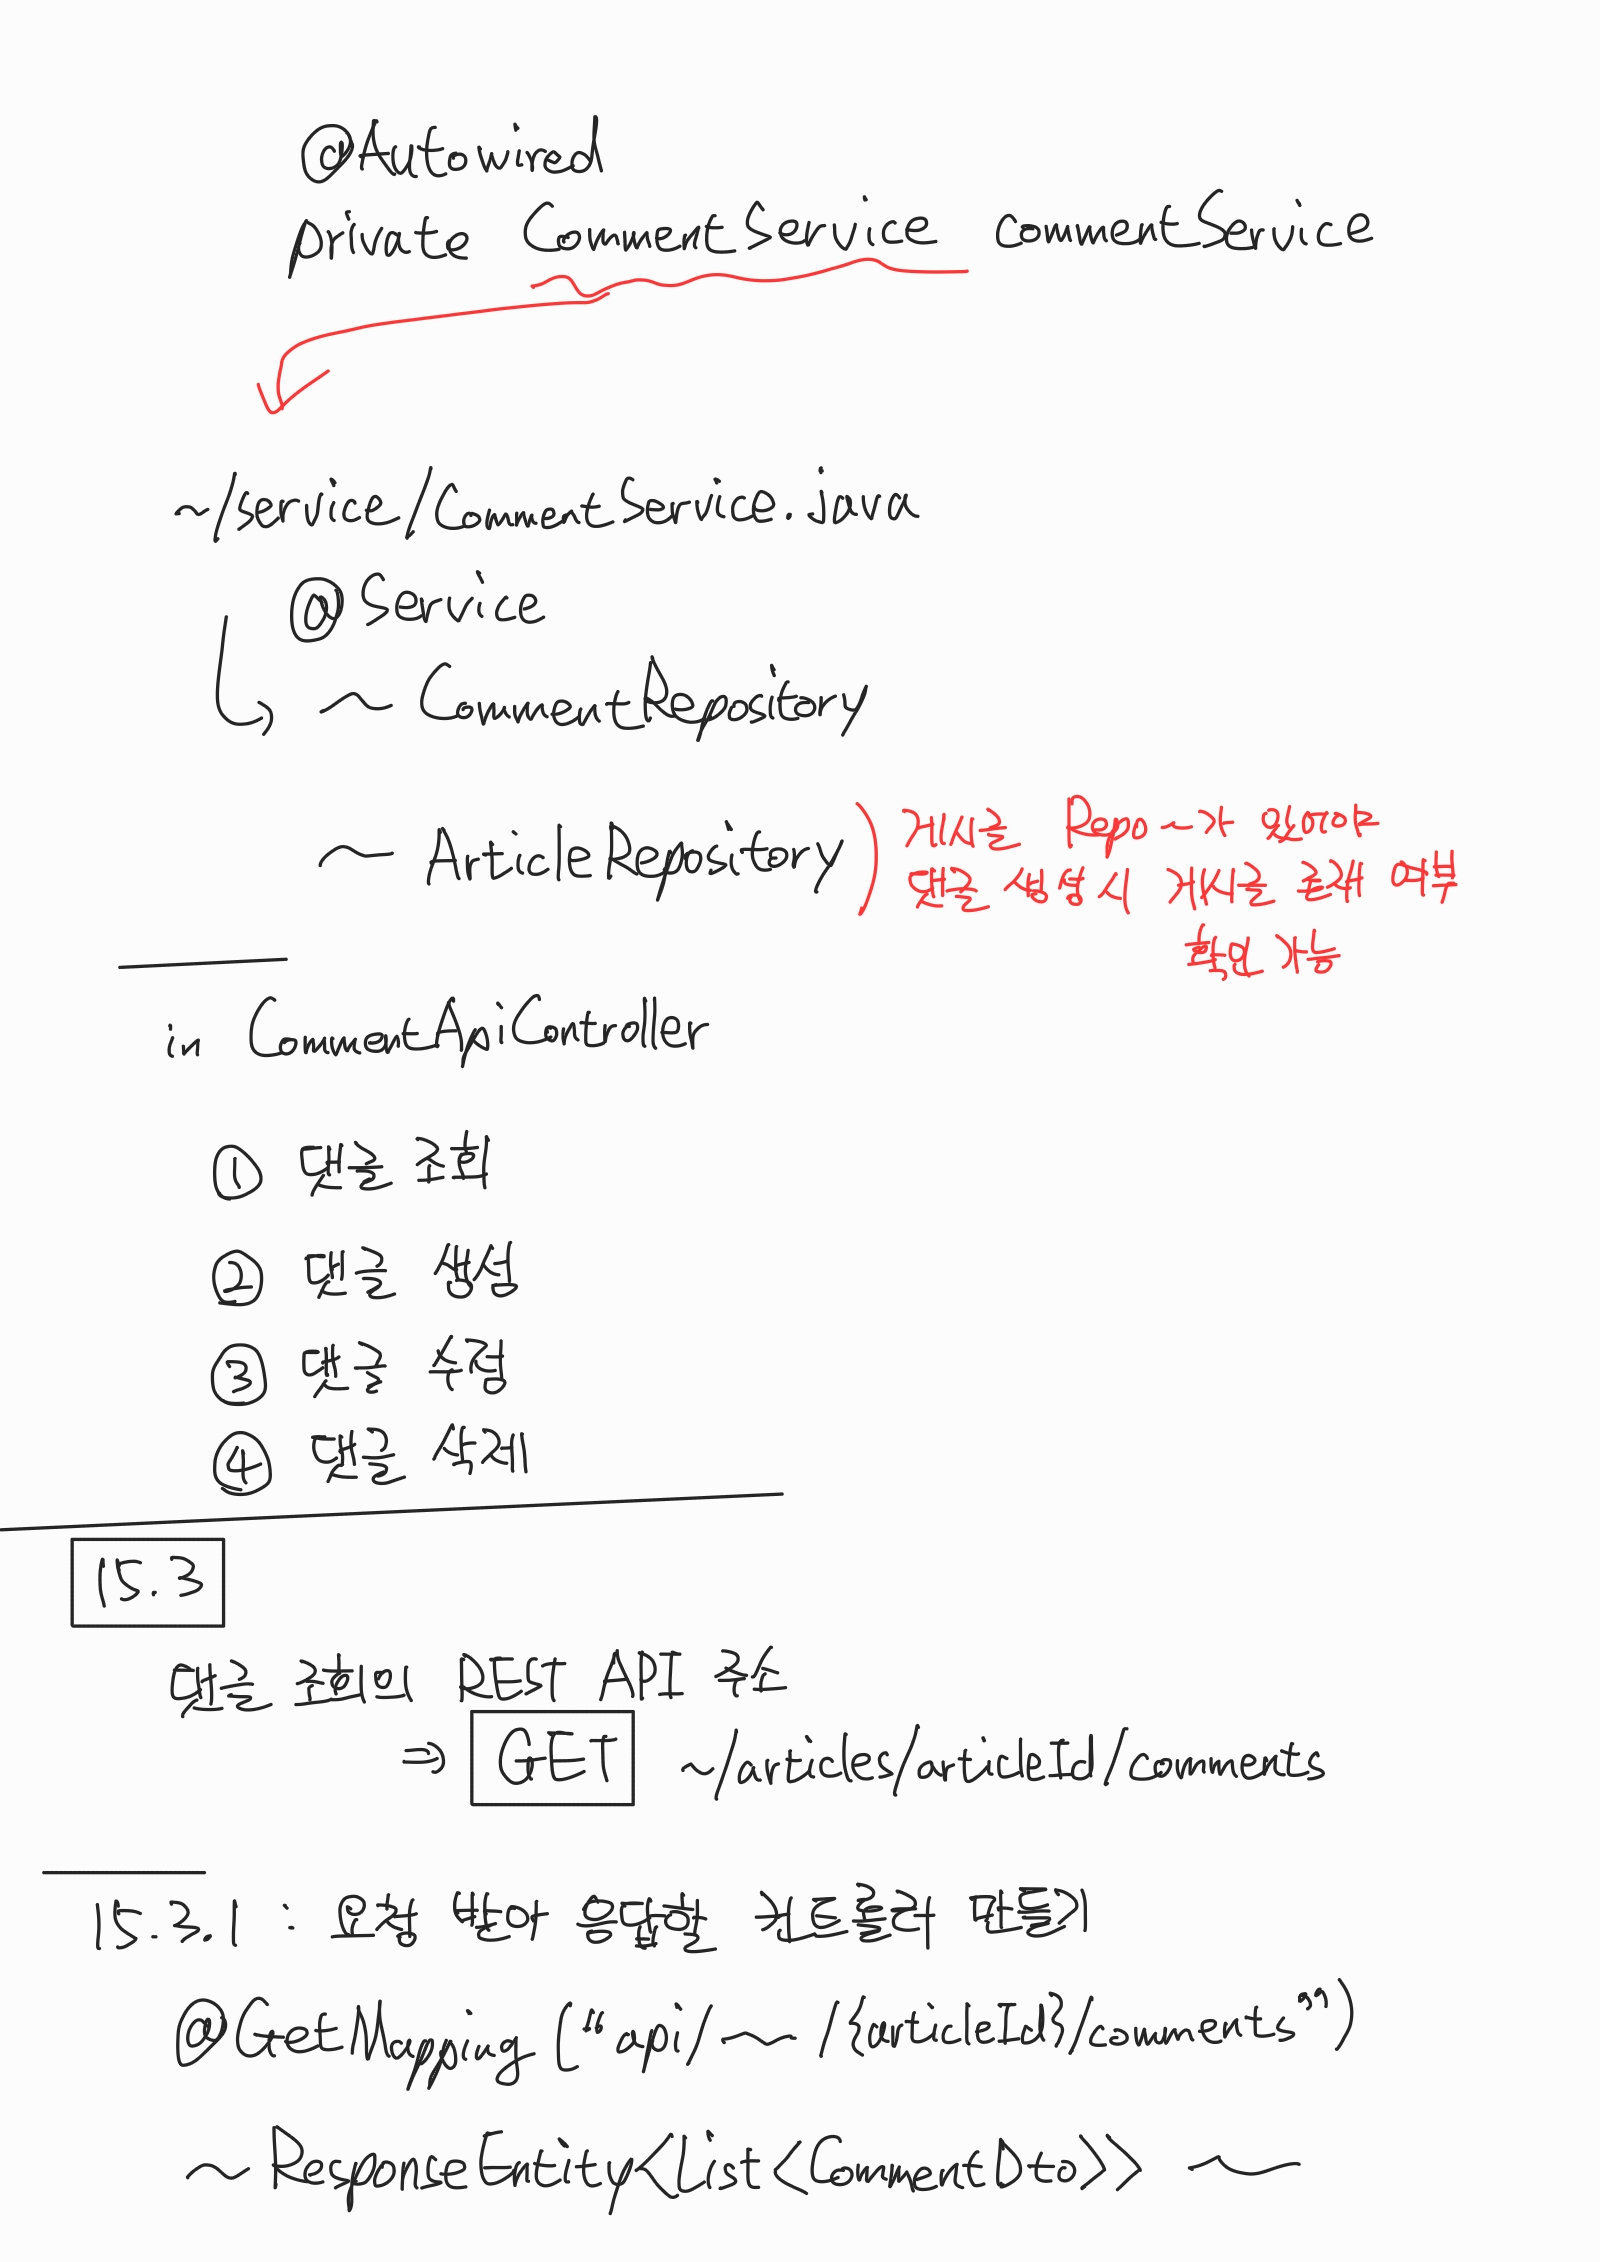 @Autowired
private CommentService commentService
~/service/CommentService.java
@Service
~ CommentRepository
~ ArticleRepository
게시글 Repo~가 있어야
댓글 생성 시 게시글 존재 여부
확인 가능
in CommentApiController
① 댓글 조회
② 댓글 생성
③ 댓글 수정
④ 댓글 삭제
15.3
댓글 조회의 REST API 주소
⇒ GET ~/articles/articleId/comments
15.3.1 : 요청 받아 응답할 컨트롤러 만들기
@GetMapping (“api/~/{articleId}/comments”)
~ ResponseEntity<List<CommentDto>> ~